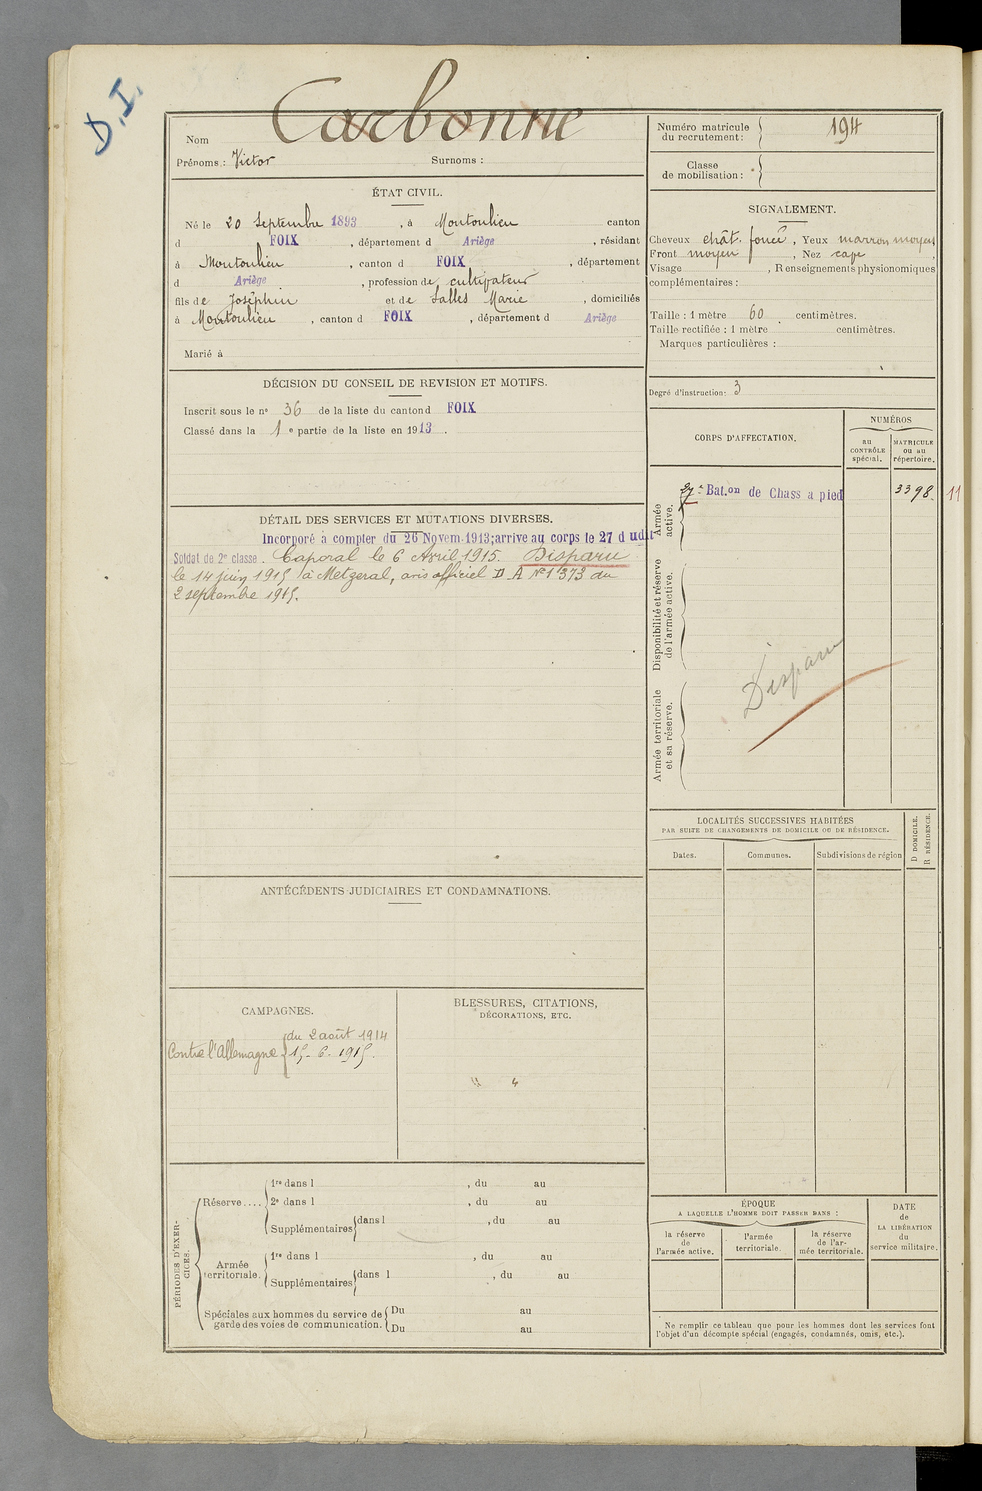 D.I.
Nom Carbonne
Prénoms : Victor Surnoms :
ÉTAT CIVIL.
Né le 20 Septembre 1893, à Montoulieu canton
d FOIX, département d Ariège, résidant
à Montoulieu, canton d FOIX, département
d Ariège, profession de cultivateur
fils de Joséphin et de Salles Marie, domiciliés
à Montoulieu, canton d FOIX, département d Ariège
Marié à
DÉCISION DU CONSEIL DE REVISION ET MOTIFS.
Inscrit sous le n° 36 de la liste du canton d FOIX
Classé dans la 1e partie de la liste en 1913.
DÉTAIL DES SERVICES ET MUTATIONS DIVERSES.
Incorporé à compter du 26 Novem. 1913; arrive au corps le 27 d udit
Soldat de 2e classe. Caporal le 6 Avril 1915. Disparu
le 14 juin 1915 à Metzeral, avis officiel D A N° 1373 du
2 septembre 1915.
ANTÉCÉDENTS JUDICIAIRES ET CONDAMNATIONS.
CAMPAGNES.
Contre l'Allemagne { du 2 août 1914
15-6-1915.
BLESSURES, CITATIONS,
DÉCORATIONS, ETC.
PÉRIODES D'EXER-
CICES.
Réserve .... 1re dans l , du au
2e dans l , du au
Supplémentaires { dans l , du au
Armée
territoriale. 1re dans l , du au
Supplémentaires { dans l , du au
Spéciales aux hommes du service de { Du au
garde des voies de communication. { Du au
Numéro matricule
du recrutement : 194
Classe
de mobilisation :
SIGNALEMENT.
Cheveux chât. foncé, Yeux marron moyen
Front moyen, Nez cave,
Visage , Renseignements physionomiques
complémentaires :
Taille : 1 mètre 60 centimètres.
Taille rectifiée : 1 mètre centimètres.
Marques particulières :
Degré d'instruction : 3
CORPS D'AFFECTATION.
NUMÉROS
au
CONTRÔLE
spécial.
MATRICULE
ou au
répertoire.
Armée
active.
27e Bat.on de Chass a pied 3398. 11
Disponibilité et réserve
de l'armée active.
Disparu
Armée territoriale
et sa réserve.
LOCALITÉS SUCCESSIVES HABITÉES
PAR SUITE DE CHANGEMENTS DE DOMICILE OU DE RÉSIDENCE.
D DOMICILE.
R RÉSIDENCE.
Dates. Communes. Subdivisions de région
ÉPOQUE
A LAQUELLE L'HOMME DOIT PASSER DANS :
la réserve
de
l'armée active.
l'armée
territoriale.
la réserve
de l'ar-
mée territoriale.
DATE
de
LA LIBÉRATION
du
service militaire.
Ne remplir ce tableau que pour les hommes dont les services font
l'objet d'un décompte spécial (engagés, condamnés, omis, etc.).